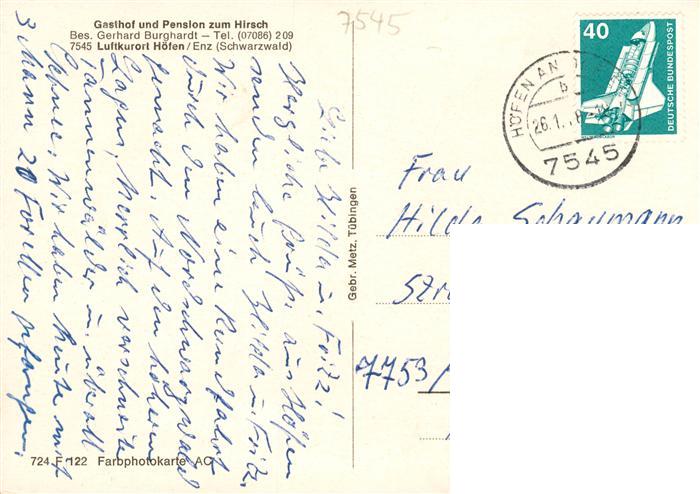 Gasthof und Pension zum Hirsch
Bes. Gerhard Burghardt — Tel. (07086) 2 09
7545 Luftkurort Höfen/Enz (Schwarzwald)
7545
Liebe Hilda u. Fritz!
Herzliche Grüße aus Höfen
senden Euch Hilda u. Fritz.
Wir haben eine Rundfahrt
durch den Nordschwarzwald
gemacht. Auf den höheren
Lagen, herrlich verschneite
Tannenwälder u. überall
Schnee. Wir haben heute mit
3 Mann 20 Forellen gefangen.
724 F 122 Farbphotokarte AC
Gebr. Metz, Tübingen
40
DEUTSCHE BUNDESPOST
HÖFEN AN
b
26.1.
7545
Frau
Hilda Schaumann
Str
7753/